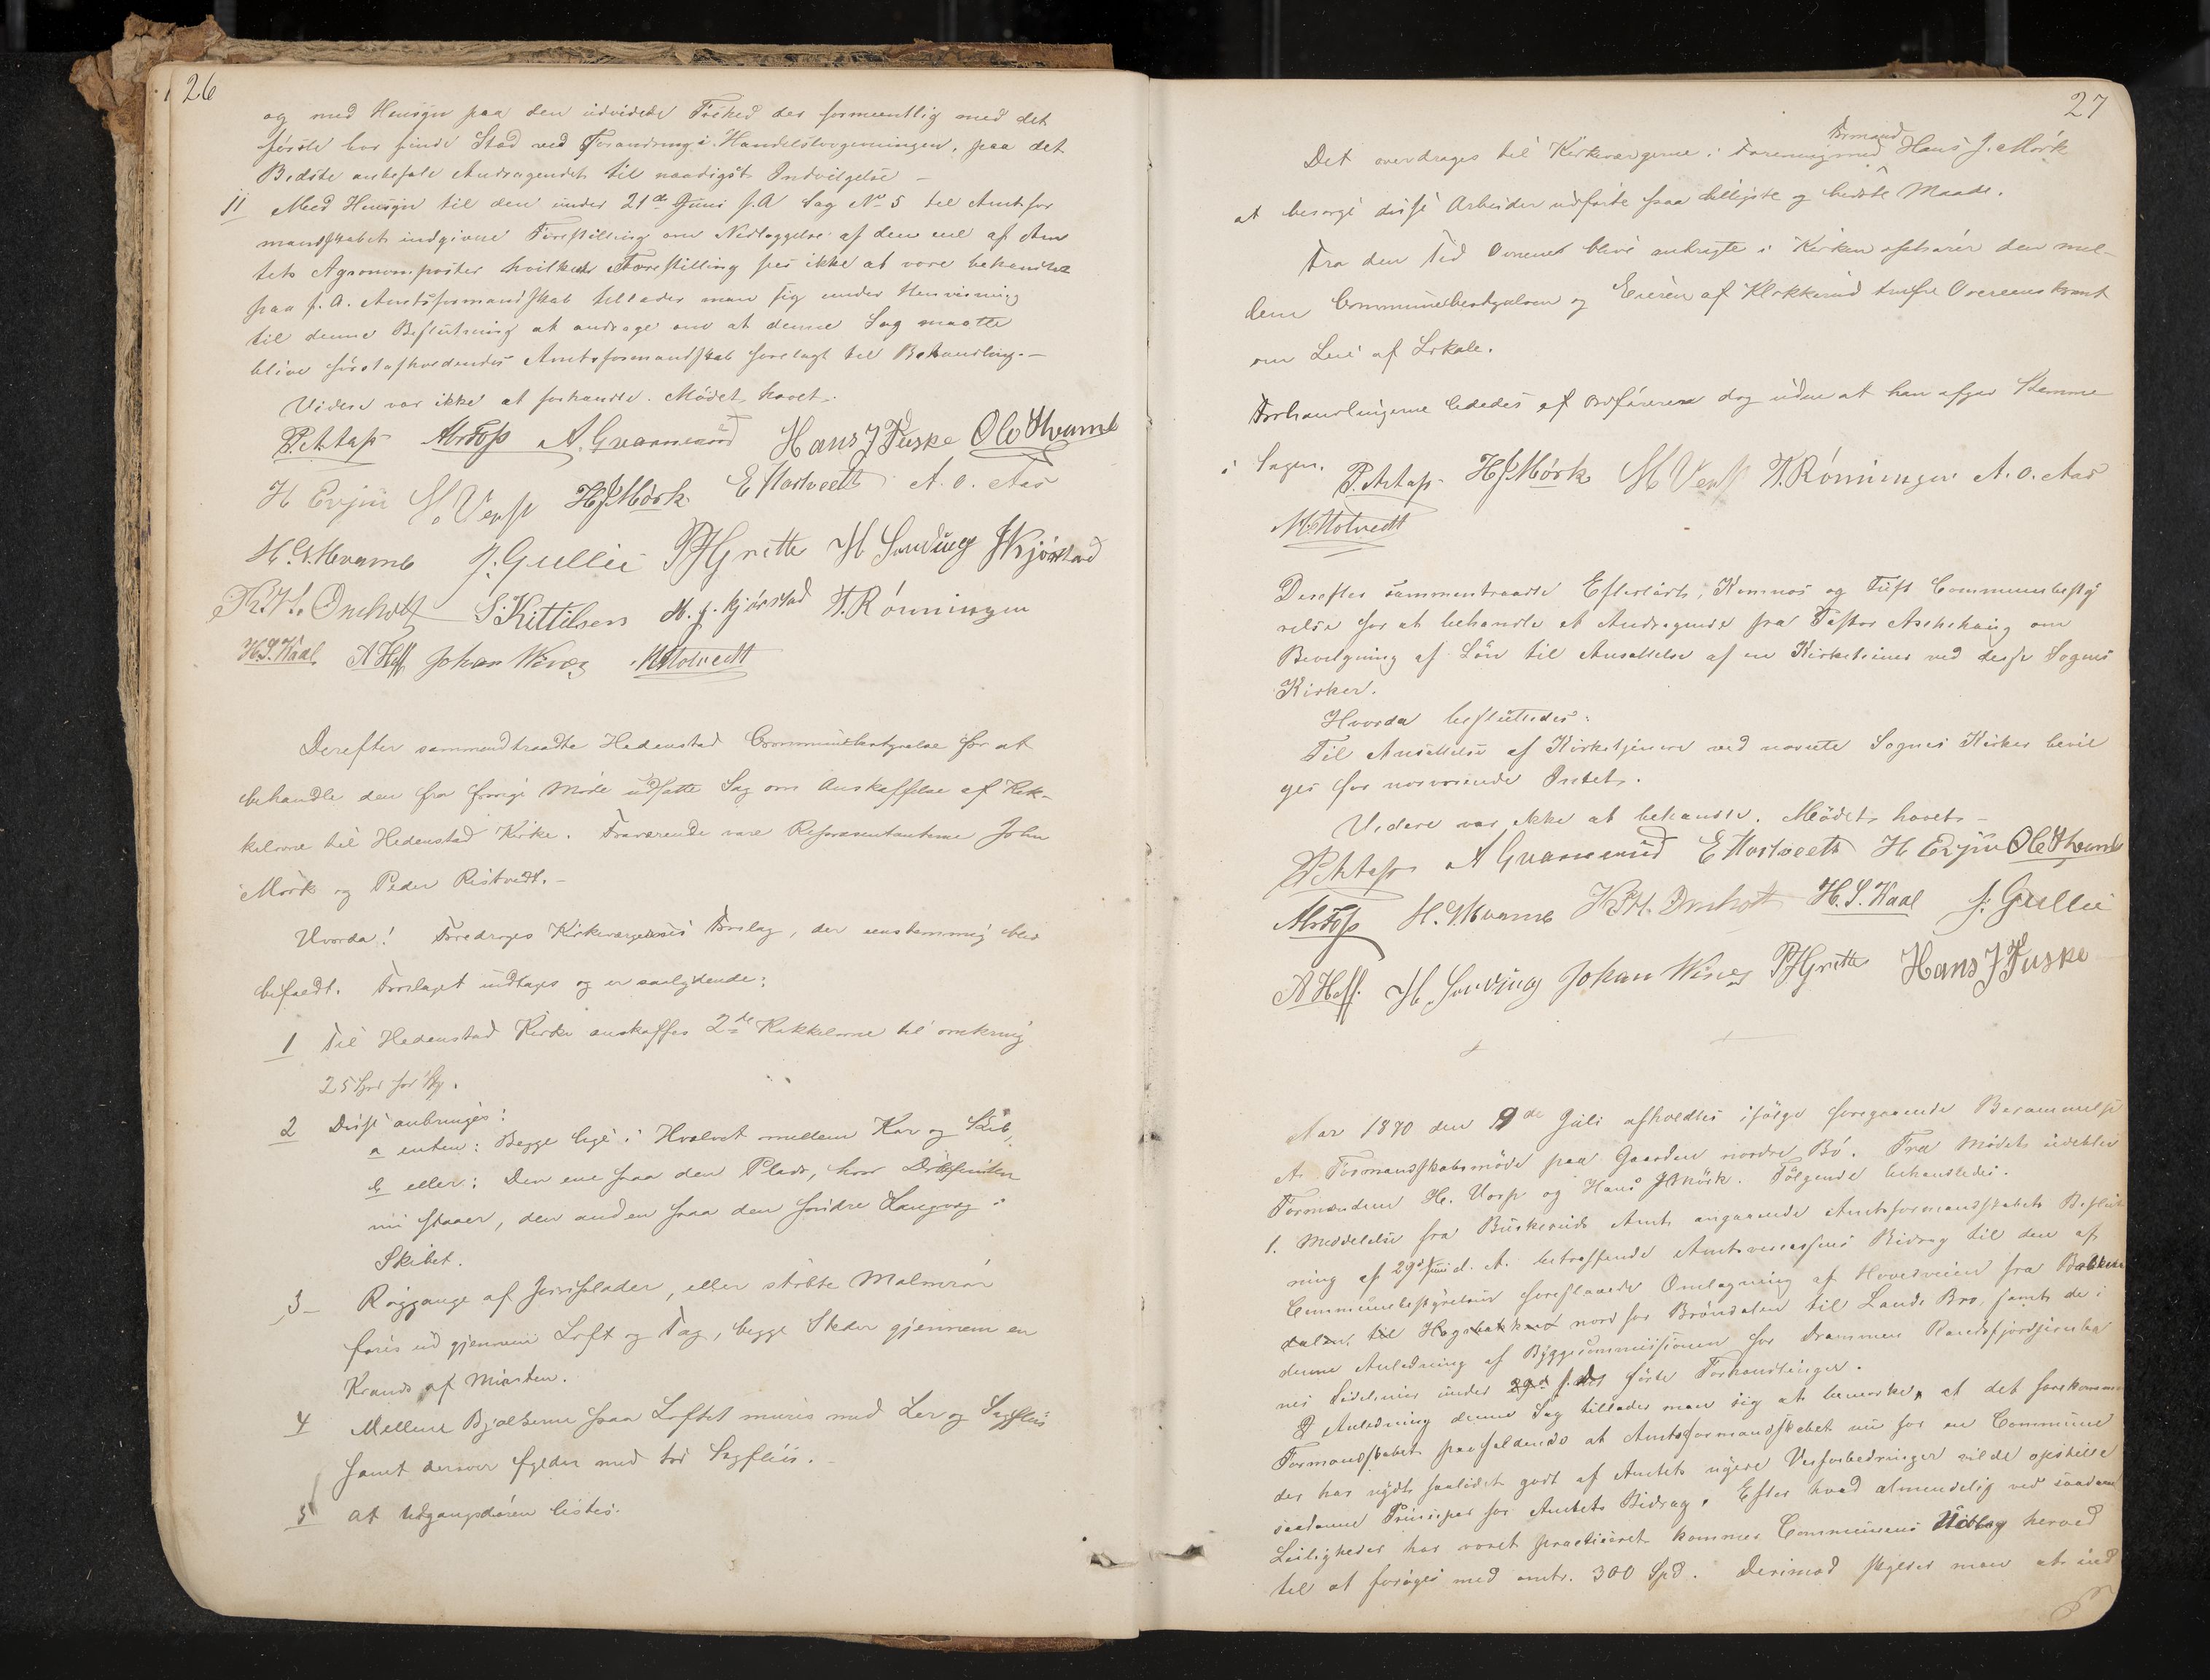 26
og med Hensyn paa den udvidede Frihed der formeentlig med det
første bør finde Sted ved Forandring i Handelslovgivningen, paa det
Bedste anbefale Andragendet til naadigst Indvilgelse –
11 Med Hensyn til den under 21de Juni f.A Sag No 5 til Amtsfor
mandskabet indgivne Forestilling om Nedlæggelse af den ene af Am
tets Agronomposter hvilken Forestilling sees ikke at være behandlet
paa f. A. Amtsformandskab tillader man sig under Henvisning
til denne Beslutning at andrage om at denne Sag maatte
blive førstafholdendes Amtsformandskab forelagt til Behandling. –
Videre var ikke at forhandle. Mødet hævet.
A. Gvammerud Hans J Tuske Ole Hvamb
H Evju HJMørk E Hostvedt A. O. Aas
H. G. Hvamb J. Gullii PHGritte H Sording Kjørstad
K.H. Omholt S. Kittilsen H. J. Kjørstad T. Rønningen
H.S. Kaal A Hoff Johan Winer
Derefter sammendtraadte Hedenstad Communebestyrelse for at
behandle den fra forrige Møde udsatte Sag om Anskaffelse af Kak-
kelovne til Hedenstad Kirke. Fraværende vare Repræsentanterne John
Mørk og Peder Ristvedt. –
Hvorda! Foredroges Kirkeværgernes Forslag, der eenstemmig blev
bifaldt. Forslaget indtages og er saalydende:
1 Til Hedenstad Kirke anskaffes 2de Kakkelovne til omkring
25 Spd for Stk.
2 Disse anbringes:
a enten: Begge lige i Hvælvet mellem Kor og Skib,
b eller: Den ene paa den Plads, hvor Døbefonten
nu staaer, den anden paa den søndre Langvæg i
Skibet.
3 – Røggange af Jernplader, eller støbte Malmrør
føres ud gjennem Loft og Tag, begge Steder gjennem en
Krands af Mursten.
4 Mellem Bjælkerne paa Loftet mures med Ler og Sagfliis
samt derover fyldes med tør Sagfliis.
5 at Udgangsdøren listes.
27
Det overdrages til Kirkeværgerne i Forening med Formand Hans J. Mørk
at besørge disse Arbeider udførte paa billigste og bedste Maade.
Fra den Tid Ovnene blive anbragte i Kirken ophører den mel-
lem Communebestyrelsen og Eieren af Klokkerud trufne Overeenskomst
om Leie af Lokale.
Forhandlingerne lededes af Ordføreren dog uden at han afgav Stemme
i Sagen. HJMørk T. Rønningen A. O. Aas
Derefter sammentraadte Efterløts, Komnæs og Tuft Communebesty
relse for at behandle et Andragende fra Pastor Aschehoug om
Bevilgning af Løn til Ansættelse af en Kirketjener ved disse Sognes
Kirker.
Hvorda besluttedes:
Til Ansættelse af Kirketjenere ved nævnte Sognes Kirker bevil
ges for nærværende Intet.
Videre var ikke at behandle. Mødet hævet –
A Gvammerud E Hostvedt H Evju Ole Hvamb
H. G. Hvamb K.H. Omholt H. S. Kaal J. Gullii
A Hoff. H. Sording Johan Winer PHGritte Hans J Tuske
Aar 1870 den 9de Juli afholdtes ifølge foregaaende Berammelse
et Formandskabsmøde paa Gaarden nordre Bø. Fra Mødet udebleve
Formændene H. Vorp og Hans J Mørk. Følgende behandledes.
1. Meddelelse fra Buskeruds Amt angaaende Amtsformandskabets Beslut
ning af 29de Juni d. A. betræffende Amtsveicassens Bidrag til den af
Communebestyrelsen foreslaaede Omlægning af Hovedveien fra Bakke
dalen, til Hagebakken nord for Brøndalen til Lands Bro, samt de i
denne Anledning af Byggecommissionen for Drammen Randsfjordjernba
nes Sidelinier under førte Forhandlinger.
I Anledning denne Sag tillader man sig at bemærke, at det forekommer
Formandskabet paafaldende at Amtsformandskabet nu for en Commune
der har nydt saalidet godt af Amtets nyere Veiforbedringer vilde opstille
saadanne Principer for Amtets Bidrag. Efter hvad almindelig ved saadanne
Leiligheder har været practiceret kommer Communens Udlæg herved
til at forøges med omtr. 300 Spd. Derimod skylder man at ind